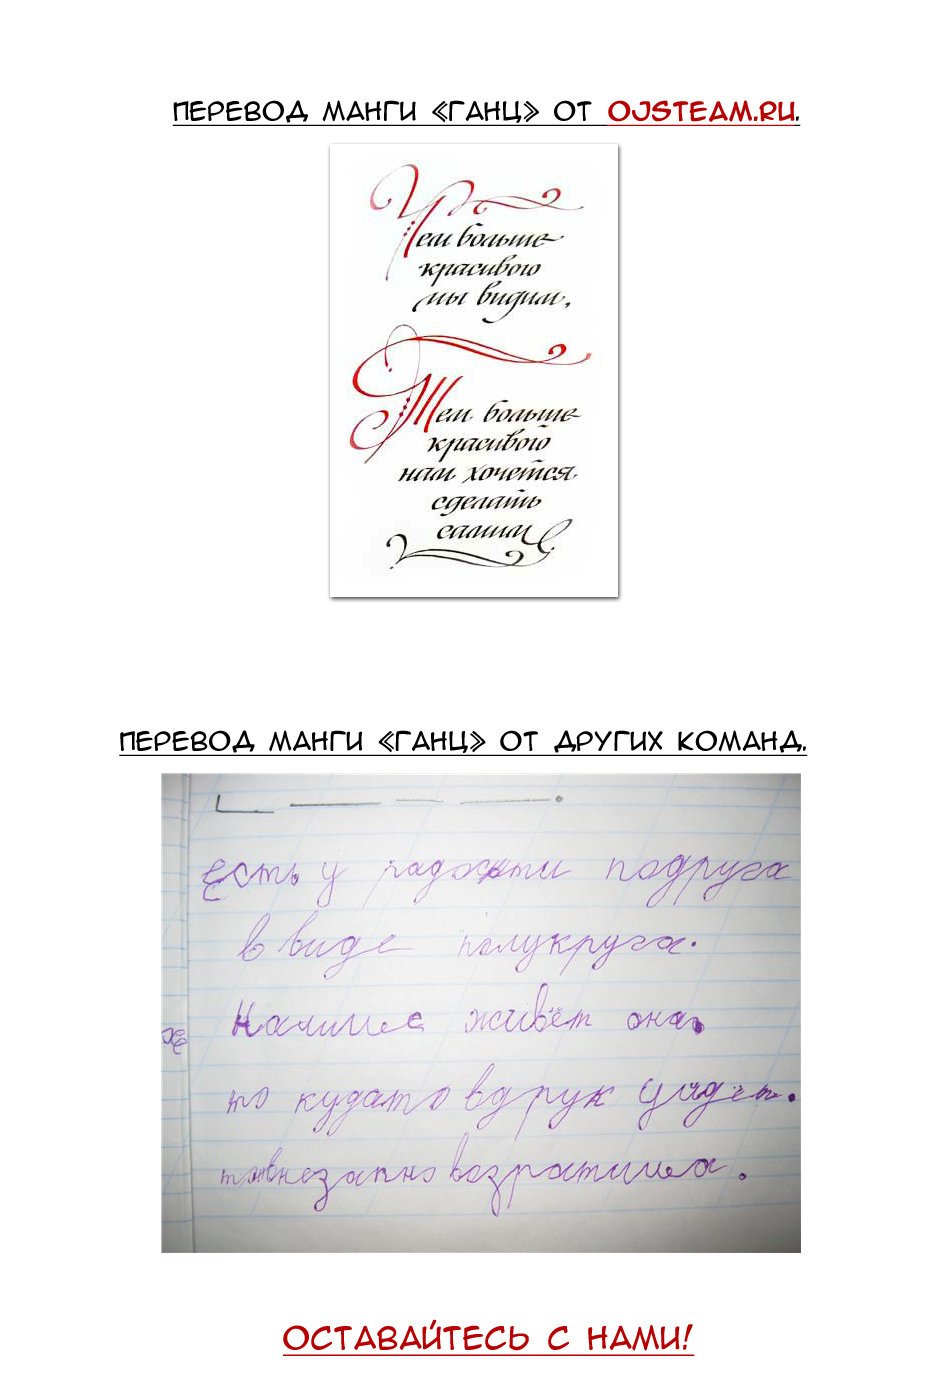 ПЕРЕВОД МАНГИ «ГАНЦ» ОТ OJSTEAM.RU.
Чем больше
красивого
мы видим,
Тем больше
красивого
нам хочется
сделать
самим
ПЕРЕВОД МАНГИ «ГАНЦ» ОТ ДРУГИХ КОМАНД.
Есть у радости подруга
в виде полукруга.
Налице живёт она.
то кудато вдрук уйдёт.
то внезапно возратица.
ОСТАВАЙТЕСЬ С НАМИ!